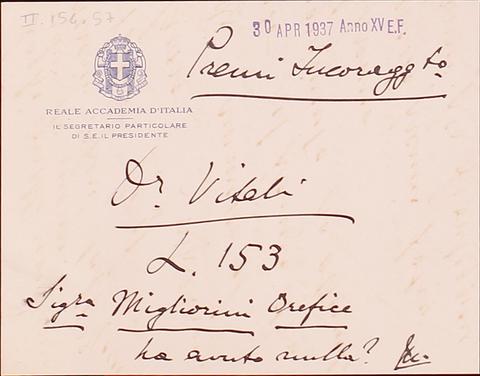 II. 154. 57
30 APR 1937 Anno XV E.F.
Premi Incoragg.to
REALE ACCADEMIA D'ITALIA
IL SEGRETARIO PARTICOLARE
DI S.E. IL PRESIDENTE
Dr. Vitali
L. 153
Sigra Migliorini Orefice
ha avuto nulla?